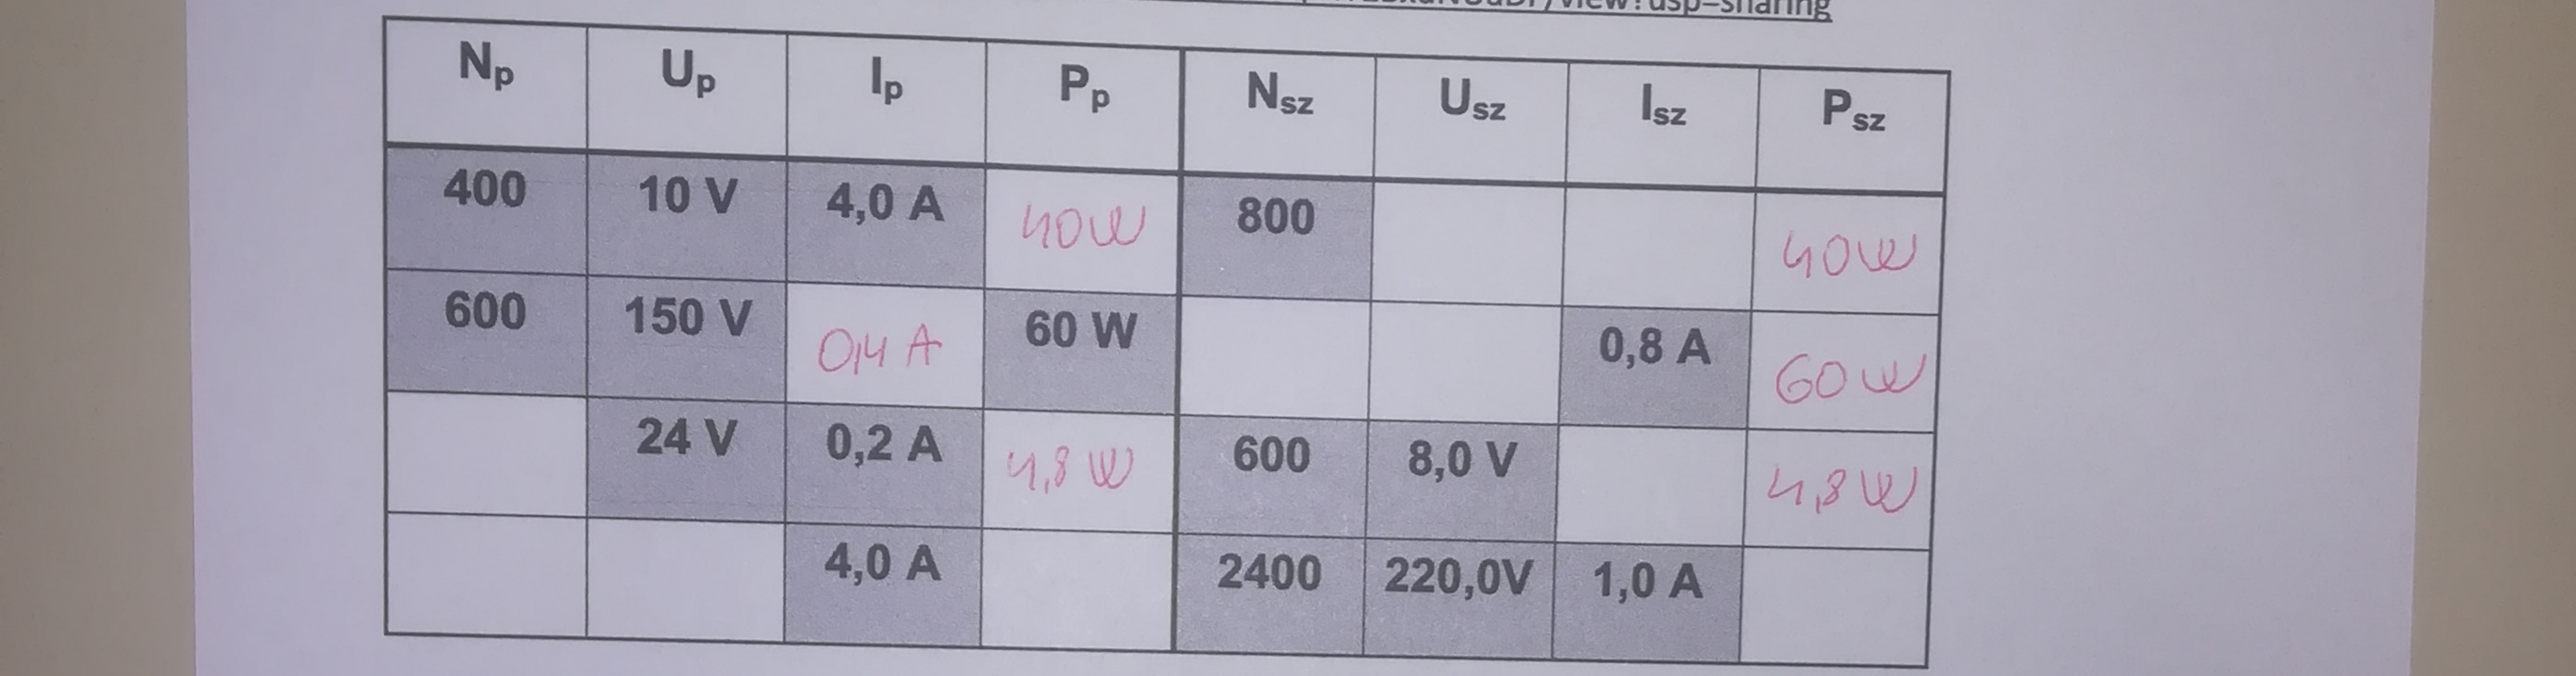 /view?usp=sharing
Np Up Ip Pp Nsz Usz Isz Psz
400 10 V 4,0 A 40W 800 40W
600 150 V 0,4 A 60 W 0,8 A 60W
24 V 0,2 A 4,8 W 600 8,0 V 4,8 W
4,0 A 2400 220,0V 1,0 A